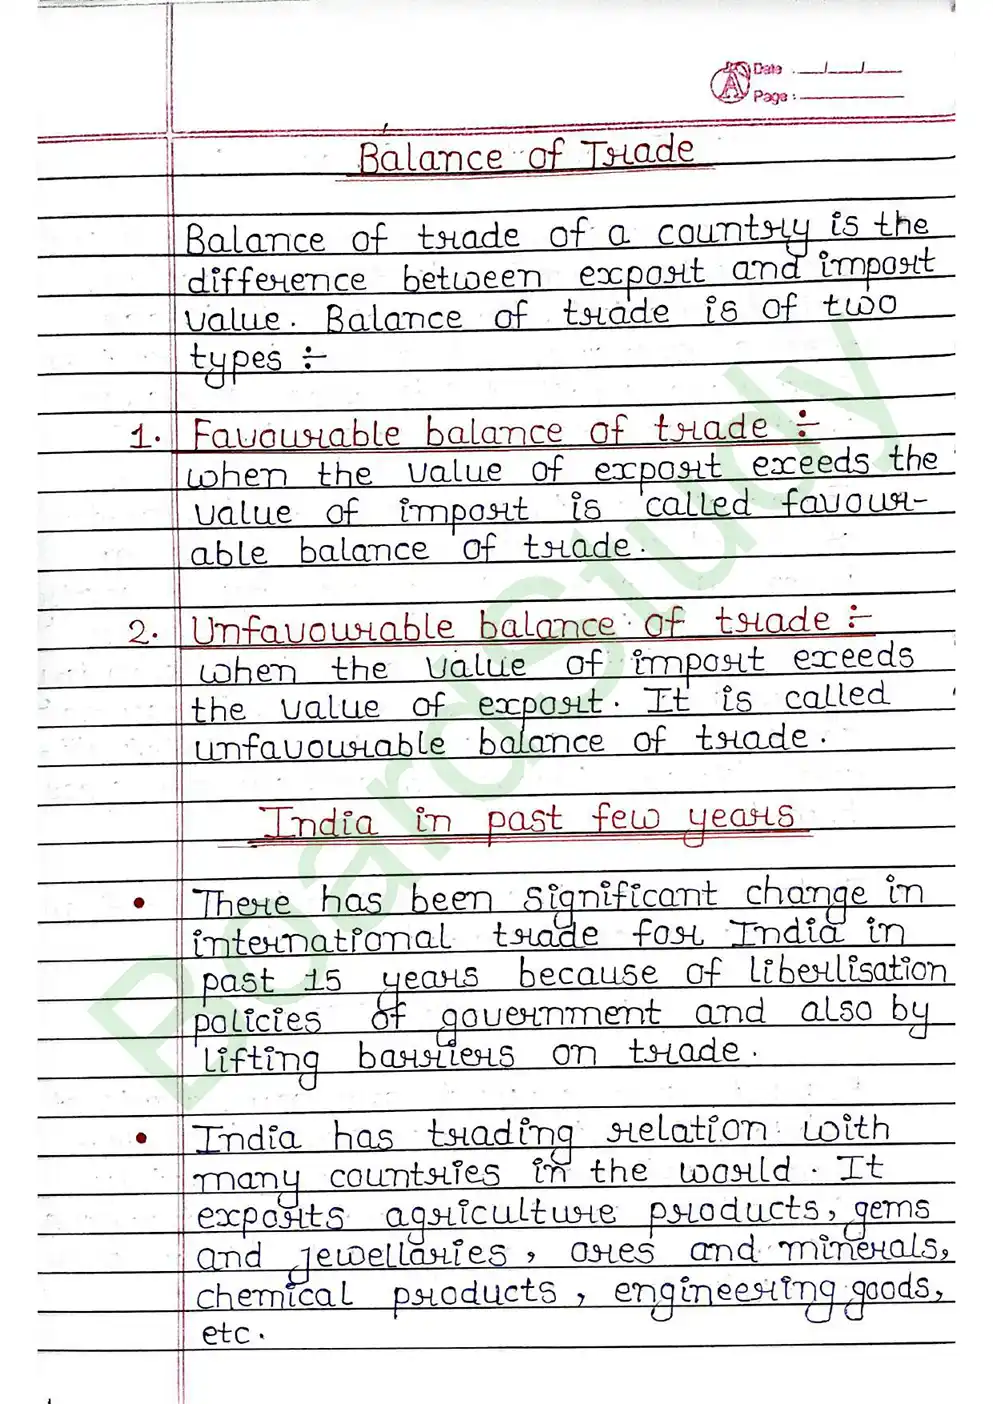 Date : __/__/__
Page : ______
Balance of Trade
Balance of trade of a country is the
difference between export and import
value. Balance of trade is of two
types :-
1. Favourable balance of trade :-
when the value of export exceeds the
value of import is called favour-
able balance of trade.
2. Unfavourable balance of trade :-
when the value of import exceeds
the value of export. It is called
unfavourable balance of trade.
India in past few years
• There has been significant change in
international trade for India in
past 15 years because of liberlisation
policies of government and also by
lifting barriers on trade.
• India has trading relation with
many countries in the world. It
exports agriculture products, gems
and jewellaries, ores and minerals,
chemical products, engineering goods,
etc.
BoardStudy